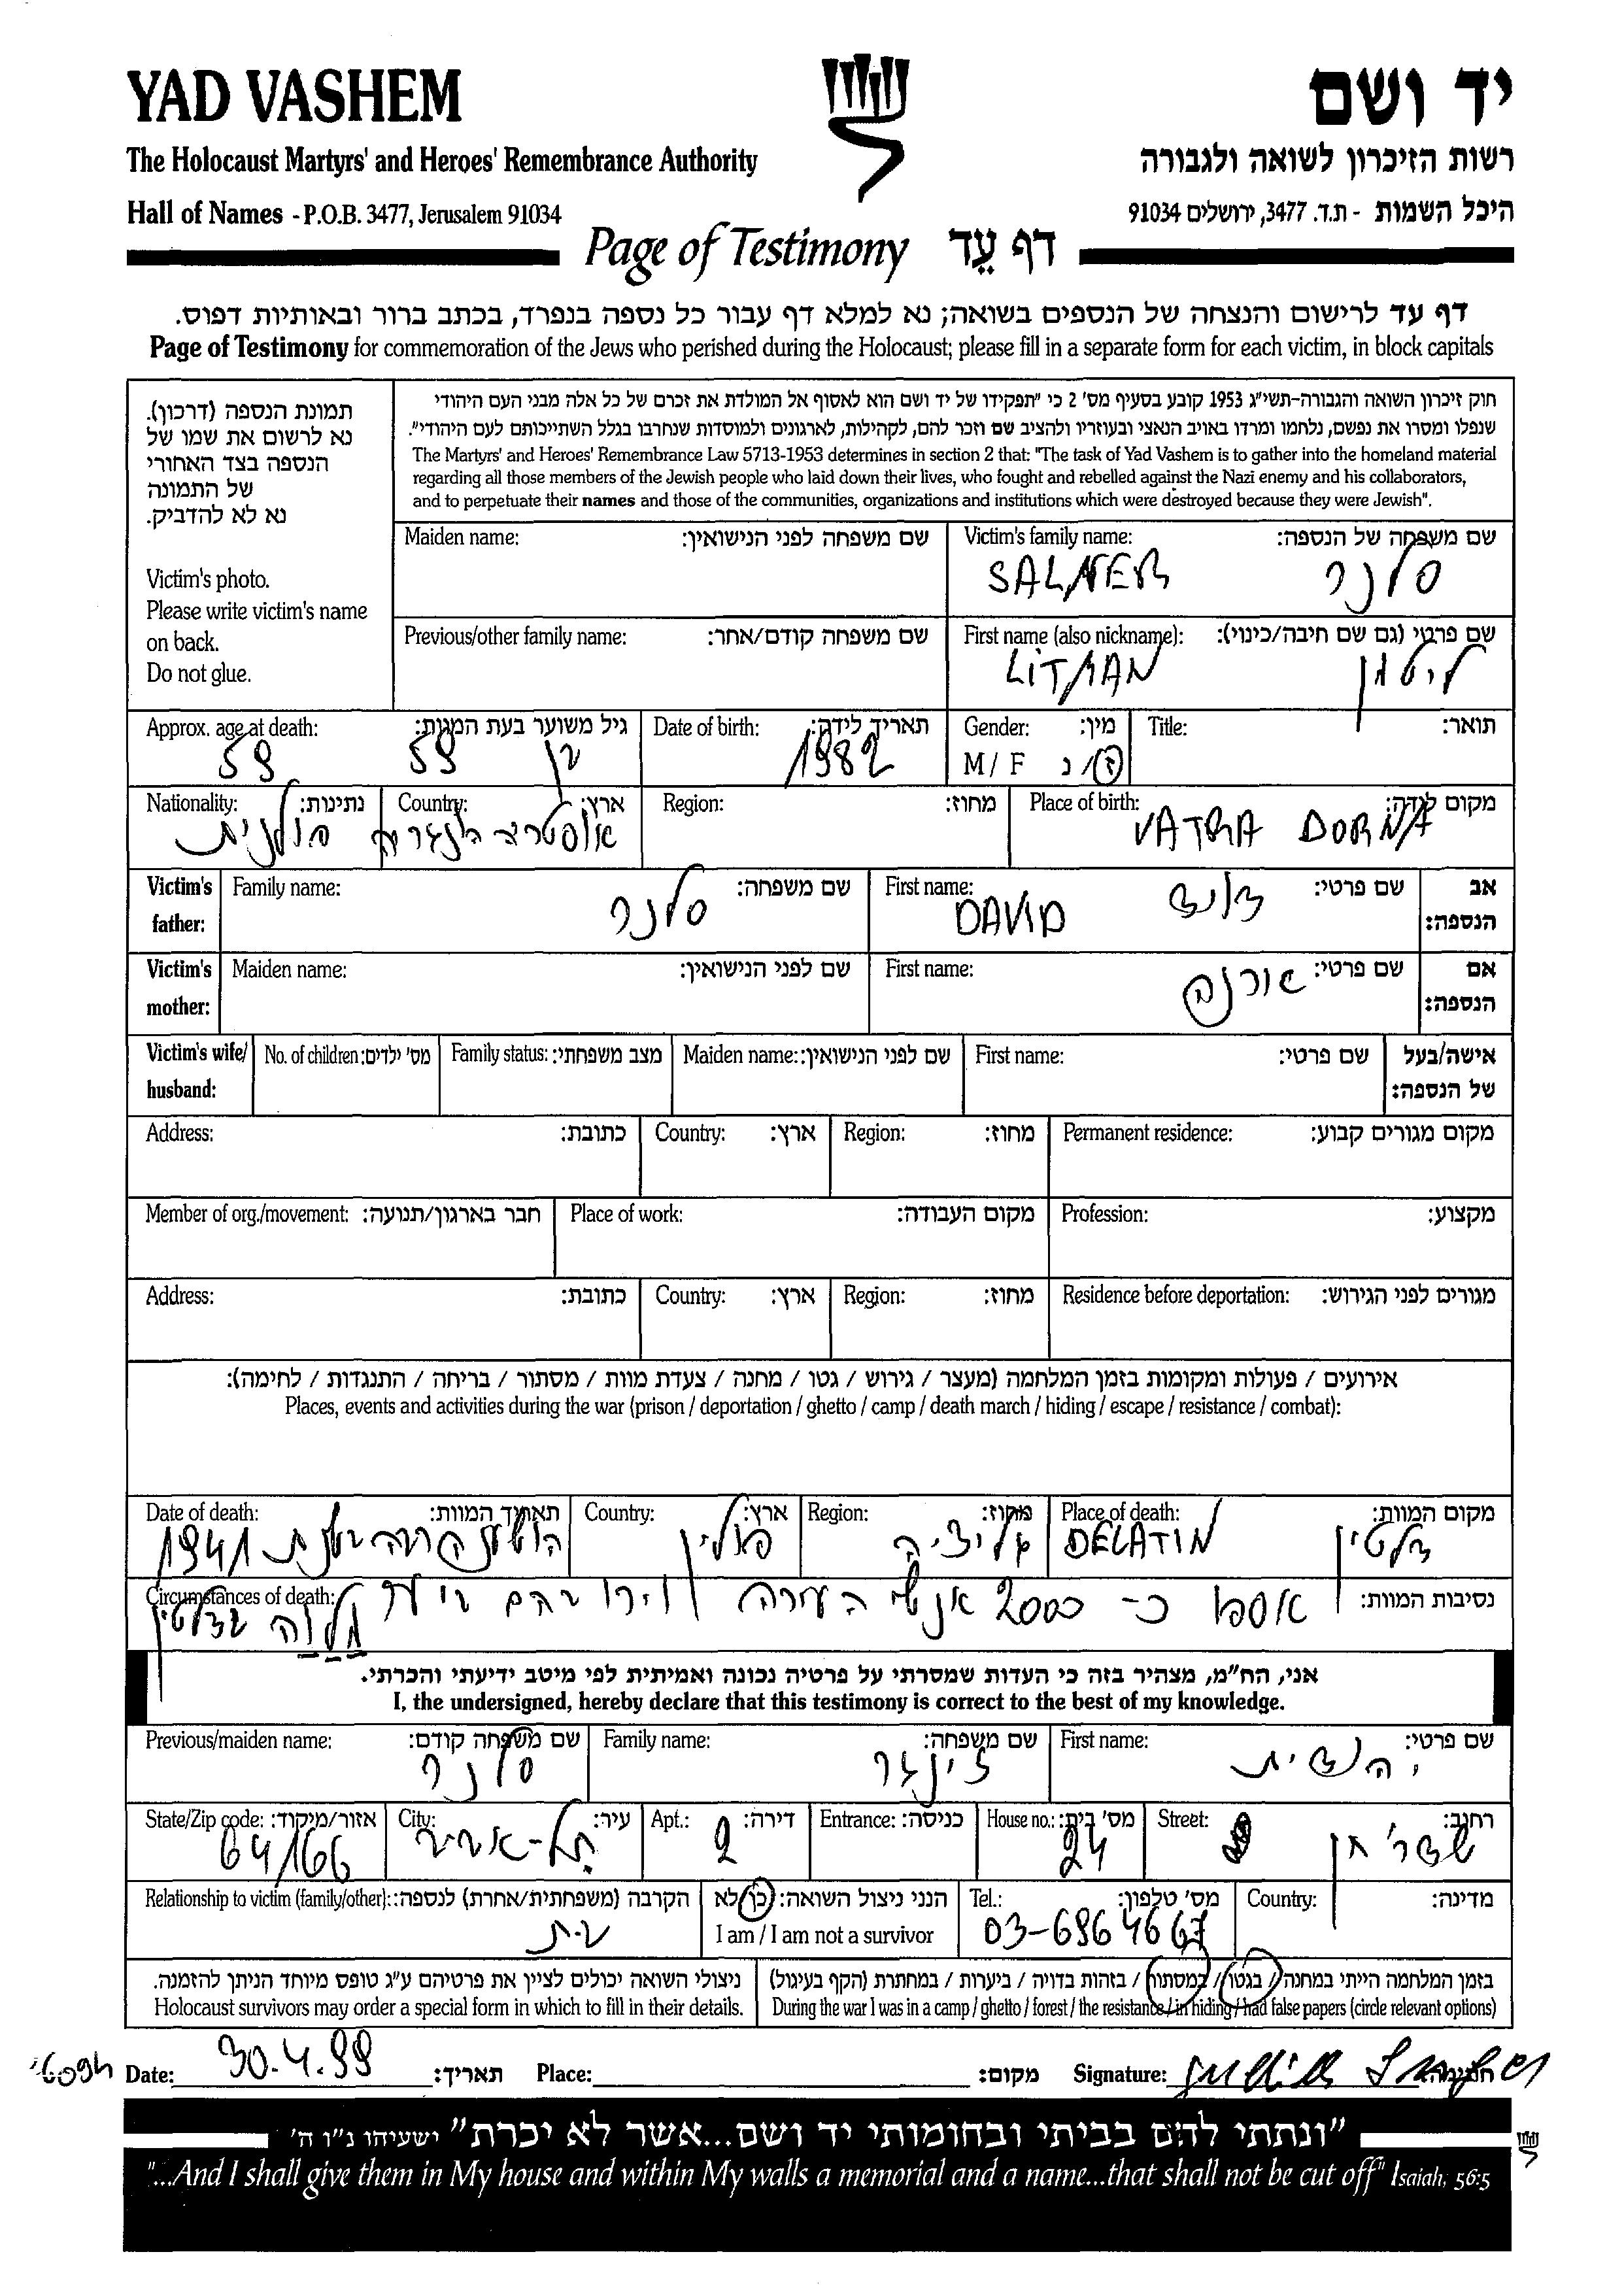 YAD VASHEM
יד ושם
The Holocaust Martyrs' and Heroes' Remembrance Authority
רשות הזיכרון לשואה ולגבורה
Hall of Names - P.O.B. 3477, Jerusalem 91034
היכל השמות - ת.ד. 3477, ירושלים 91034
Page of Testimony דף עֵד
דף עד לרישום והנצחה של הנספים בשואה; נא למלא דף עבור כל נספה בנפרד, בכתב ברור ובאותיות דפוס.
Page of Testimony for commemoration of the Jews who perished during the Holocaust; please fill in a separate form for each victim, in block capitals
תמונת הנספה (דרכון).
נא לרשום את שמו של
הנספה בצד האחורי
של התמונה
נא לא להדביק.
Victim's photo.
Please write victim's name
on back.
Do not glue.
חוק זיכרון השואה והגבורה-תשי"ג 1953 קובע בסעיף מס' 2 כי "תפקידו של יד ושם הוא לאסוף אל המולדת את זכרם של כל אלה מבני העם היהודי
שנפלו ומסרו את נפשם, נלחמו ומרדו באויב הנאצי ובעוזריו ולהציב שם וזכר להם, לקהילות, לארגונים ולמוסדות שנחרבו בגלל השתייכותם לעם היהודי".
The Martyrs' and Heroes' Remembrance Law 5713-1953 determines in section 2 that: "The task of Yad Vashem is to gather into the homeland material
regarding all those members of the Jewish people who laid down their lives, who fought and rebelled against the Nazi enemy and his collaborators,
and to perpetuate their names and those of the communities, organizations and institutions which were destroyed because they were Jewish".
Maiden name: שם משפחה לפני הנישואין:
Victim's family name: שם משפחה של הנספה:
SALNER סלנר
Previous/other family name: שם משפחה קודם/אחר:
First name (also nickname): שם פרטי (גם שם חיבה/כינוי):
LITMAN ליטמן
Approx. age at death: גיל משוער בעת המוות:
59 בן 59
Date of birth: תאריך לידה:
1982
Gender: מין:
M / F ז/נ
Title: תואר:
Nationality: נתינות:
פולנית
Country: ארץ:
אוסטריה הונגריה
Region: מחוז:
Place of birth: מקום לידה:
VATRA DORNA
Victim's father:
Family name: שם משפחה:
סלנר
First name: שם פרטי:
DAVID דוד
אב הנספה:
Victim's mother:
Maiden name: שם לפני הנישואין:
First name: שם פרטי:
אם הנספה:
Victim's wife/ husband:
No. of children: מס' ילדים:
Family status: מצב משפחתי:
Maiden name: שם לפני הנישואין:
First name: שם פרטי:
אישה/בעל של הנספה:
Address: כתובת:
Country: ארץ:
Region: מחוז:
Permanent residence: מקום מגורים קבוע:
Member of org./movement: חבר בארגון/תנועה:
Place of work: מקום העבודה:
Profession: מקצוע:
Address: כתובת:
Country: ארץ:
Region: מחוז:
Residence before deportation: מגורים לפני הגירוש:
אירועים / פעולות ומקומות בזמן המלחמה (מעצר / גירוש / גטו / מחנה / צעדת מוות / מסתור / בריחה / התנגדות / לחימה):
Places, events and activities during the war (prison / deportation / ghetto / camp / death march / hiding / escape / resistance / combat):
Date of death: תאריך המוות:
הושענה רבה שנת 1941
Country: ארץ:
פולין
Region: מחוז:
גליציה
Place of death: מקום המוות:
DELATIN דלטין
Circumstances of death: נסיבות המוות:
אספו כ- 2000 אנשי העירה וירו בהם ביער
בדלטין
אני, הח"מ, מצהיר בזה כי העדות שמסרתי על פרטיה נכונה ואמיתית לפי מיטב ידיעתי והכרתי.
I, the undersigned, hereby declare that this testimony is correct to the best of my knowledge.
Previous/maiden name: שם משפחה קודם:
סלנר
Family name: שם משפחה:
זינגר
First name: שם פרטי:
יהודית
State/Zip code: אזור/מיקוד:
64166
City: עיר:
תל-אביב
Apt.: דירה:
2
Entrance: כניסה:
House no.: מס' בית:
24
Street: רחוב:
שדר' חן
Relationship to victim (family/other): הקרבה (משפחתית/אחרת) לנספה:
בת
הנני ניצול השואה: כן/לא
I am / I am not a survivor
Tel.: מס' טלפון:
03-6964667
Country: מדינה:
ניצולי השואה יכולים לציין את פרטיהם ע"ג טופס מיוחד הניתן להזמנה.
Holocaust survivors may order a special form in which to fill in their details.
בזמן המלחמה הייתי במחנה/ בגטו/ במסתור/ בזהות בדויה / ביערות / במחתרת (הקף בעיגול)
During the war I was in a camp / ghetto / forest / the resistance / in hiding / had false papers (circle relevant options)
Date: 30.4.99 תאריך:
Place: מקום:
Signature: Judith Singer חתימה:
"ונתתי להם בביתי ובחומותי יד ושם...אשר לא יכרת" ישעיהו נ"ו ה'
"...And I shall give them in My house and within My walls a memorial and a name...that shall not be cut off" Isaiah, 56:5